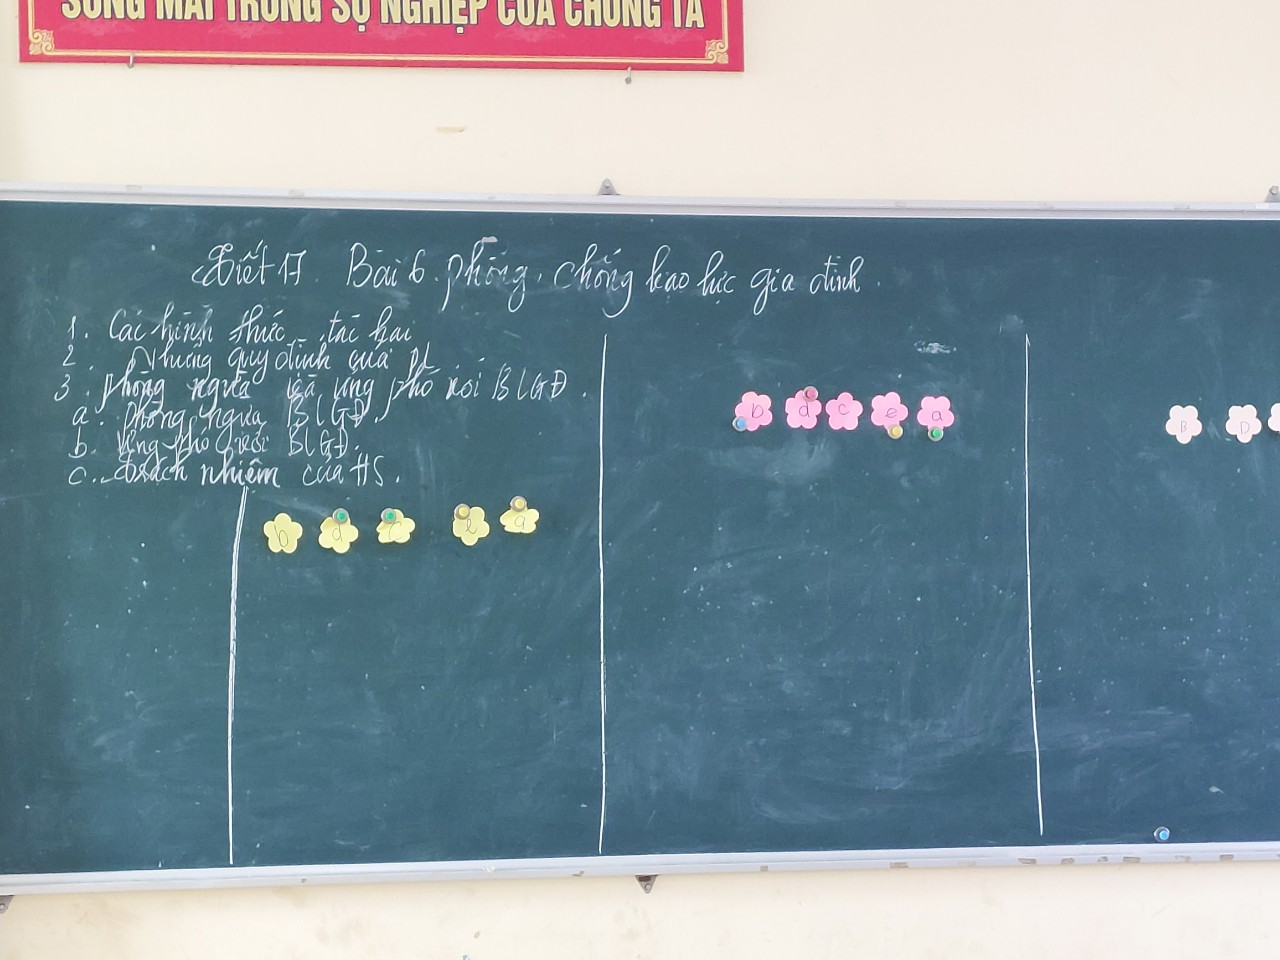 SỐNG MÃI TRONG SỰ NGHIỆP CỦA CHÚNG TA
Tiết 17. Bài 6. phòng, chống bạo lực gia đình.
1. Các hình thức, tác hại
2. Những quy định của PL
3. phòng ngừa và ứng phó với BLGĐ.
a. Phòng ngừa BLGĐ.
b. Ứng phó với BLGĐ.
c. Trách nhiệm của HS.
b d c e a
b d c e a
B D